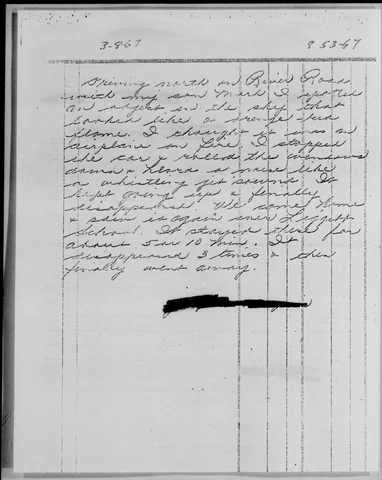 3-8-67 8 53-67
Driving north on River Road
with my son Mark I spotted
an object in the sky that
looked like a orange-red
flame. I thought it was an
airplane on fire. I stopped
the car & rolled the windows
down & heard a noise like
a whistling jet sound. It
kept going up & finally
disappeared. We came home
& saw it again over Leggett
School. It stayed there for
about 5 or 10 min. It
disappeared 3 times & then
finally went away.